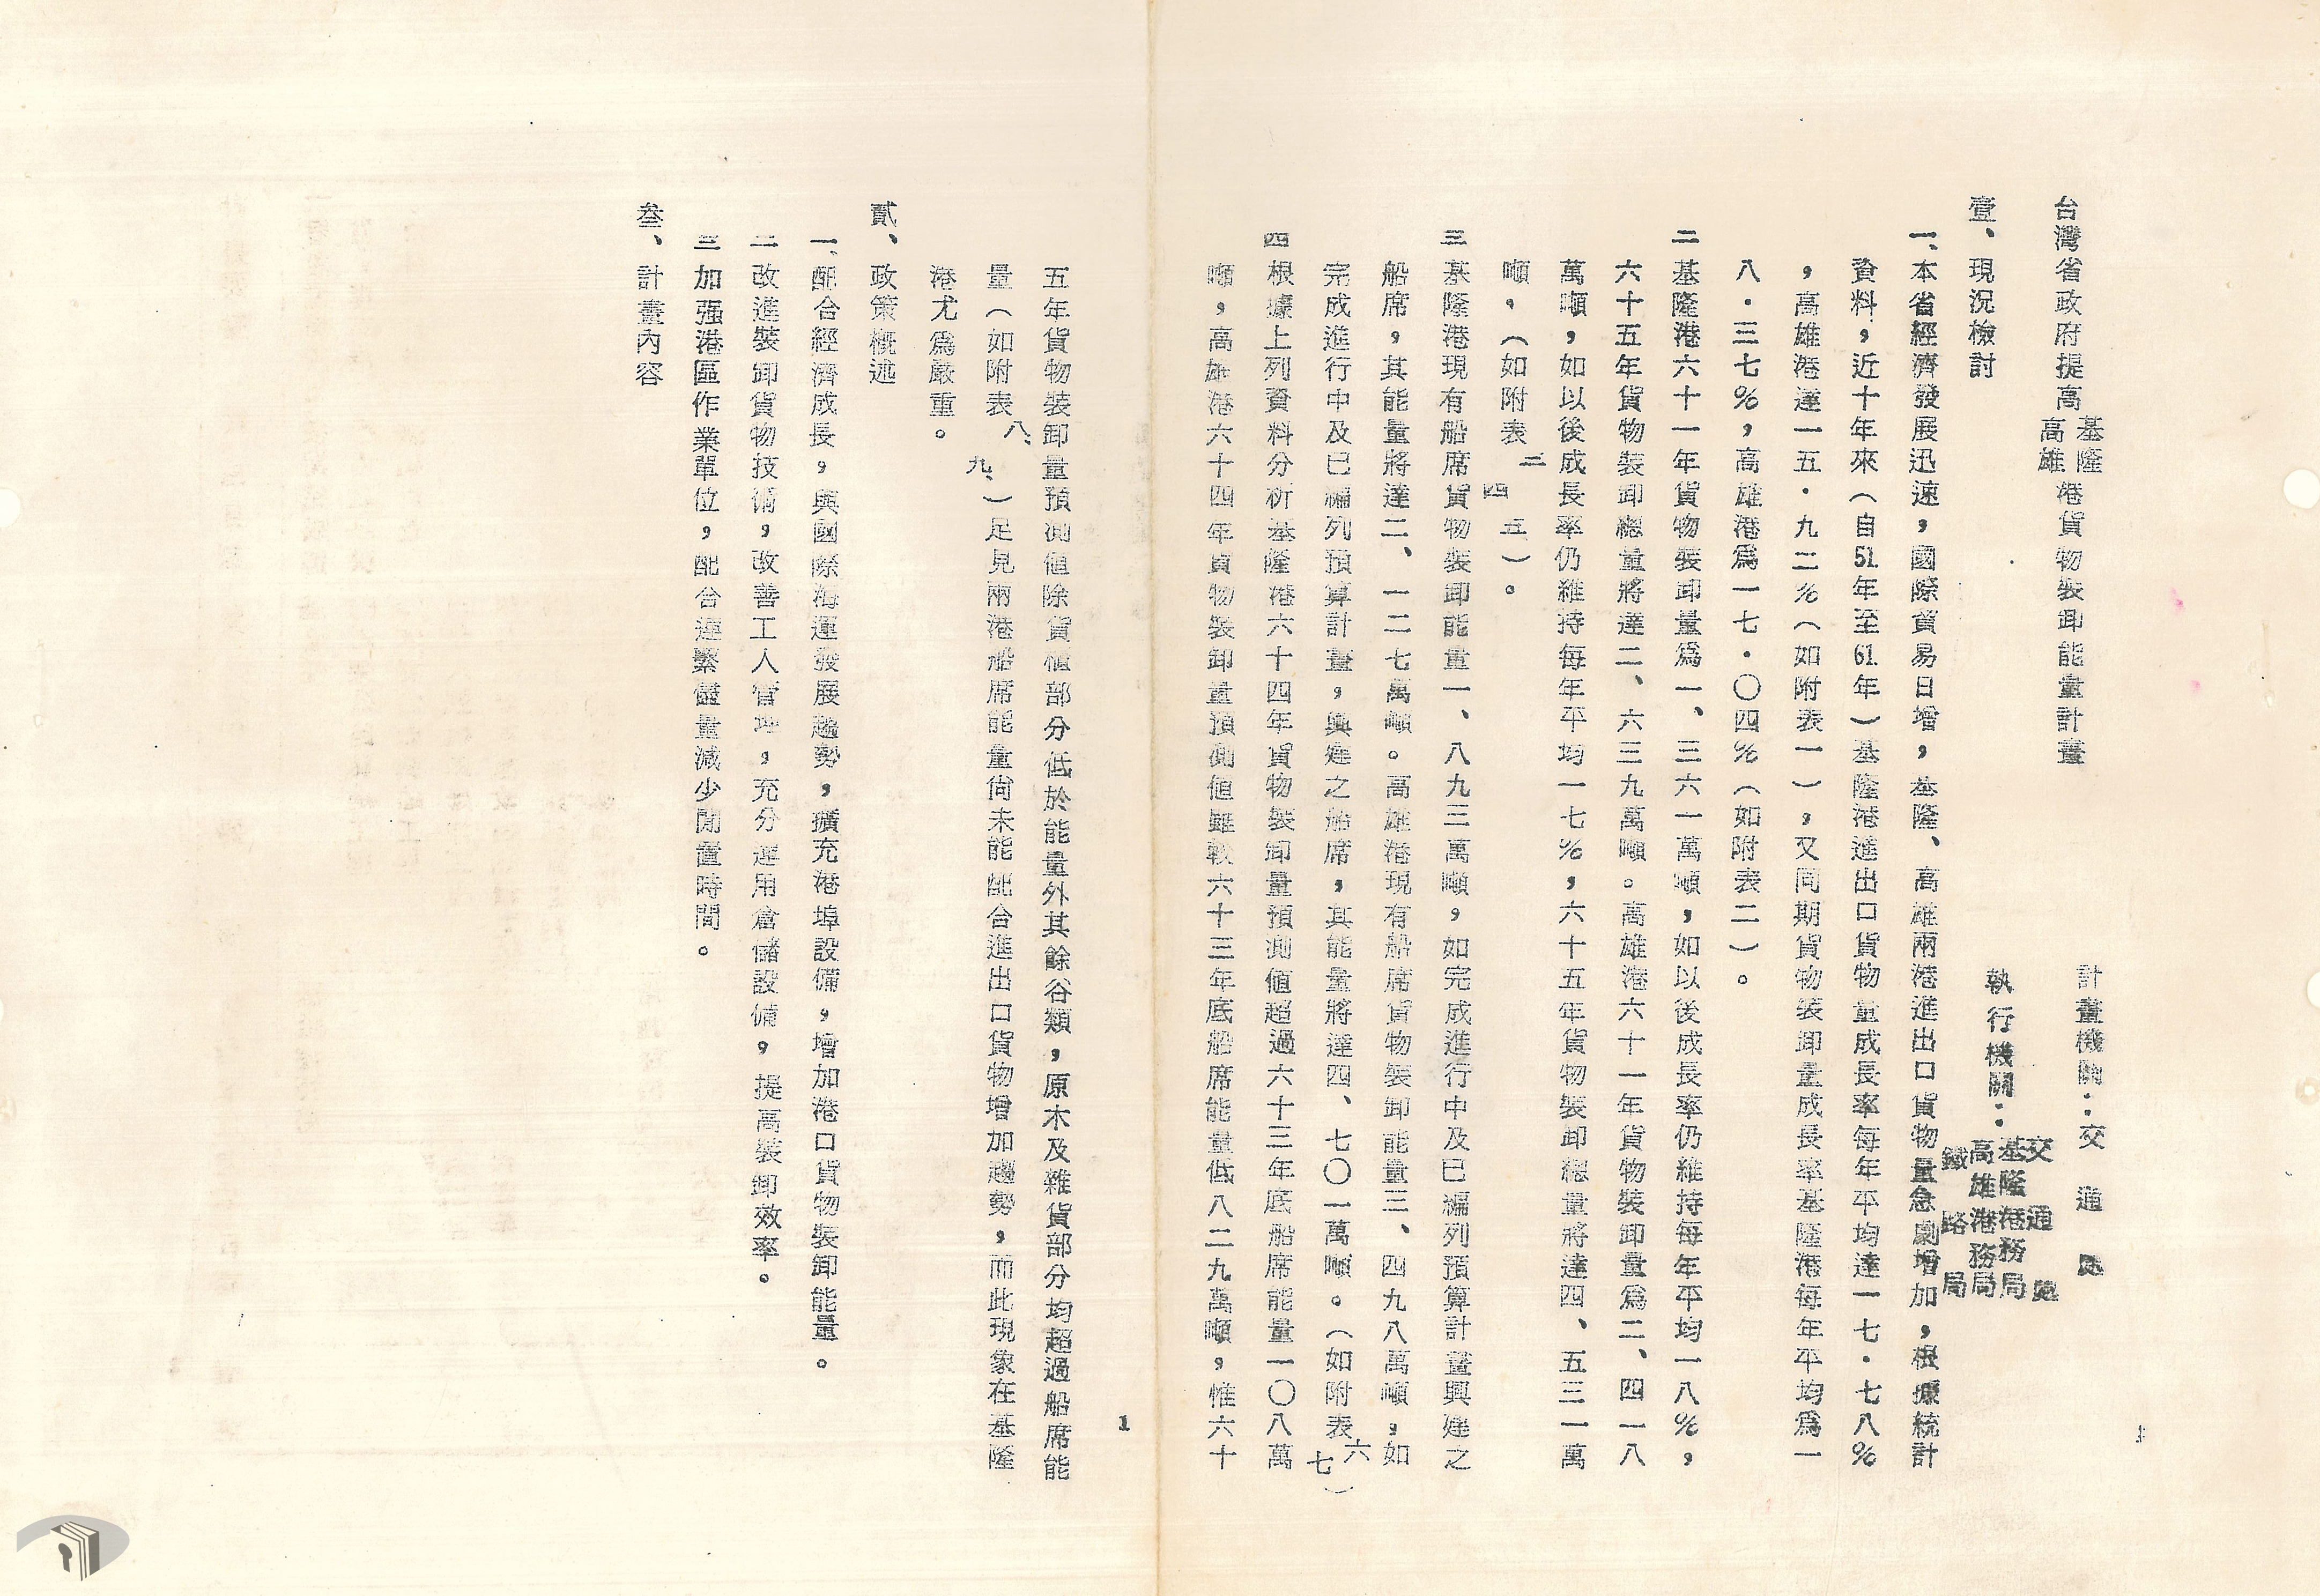 台灣省政府提高基隆高雄港貨物裝卸能量計畫
計畫機關：交通處
執行機關：交通處
基隆港務局
高雄港務局
鐵路局
壹、現況檢討
一、本省經濟發展迅速，國際貿易日增，基隆、高雄兩港進出口貨物量急劇增加，根據統計
資料，近十年來（自51年至61年）基隆港進出口貨物量成長率每年平均達一七·七八％
，高雄港達一五·九二％（如附表一），又同期貨物裝卸量成長率基隆港每年平均為一
八·三七％，高雄港為一七·〇四％（如附表二）。
二 基隆港六十一年貨物裝卸量為一、三六一萬噸，如以後成長率仍維持每年平均一八％，
六十五年貨物裝卸總量將達二、六三九萬噸。高雄港六十一年貨物裝卸量為二、四一八
萬噸，如以後成長率仍維持每年平均一七％，六十五年貨物裝卸總量將達四、五三一萬
噸，（如附表三四五）。
三 基隆港現有船席貨物裝卸能量一、八九三萬噸，如完成進行中及已編列預算計畫興建之
船席，其能量將達二、一二七萬噸。高雄港現有船席貨物裝卸能量三、四九八萬噸，如
完成進行中及已編列預算計畫，興建之船席，其能量將達四、七〇一萬噸。（如附表六七）
四 根據上列資料分析基隆港六十四年貨物裝卸量預測值超過六十三年底船席能量一〇八萬
噸，高雄港六十四年貨物裝卸量預測值雖較六十三年底船席能量低八二九萬噸，惟六十
1
五年貨物裝卸量預測值除貨櫃部分低於能量外其餘谷類，原木及雜貨部分均超過船席能
量（如附表八、九、）足見兩港船席能量尚未能配合進出口貨物增加趨勢，而此現象在基隆
港尤為嚴重。
貳、政策概述
一、配合經濟成長，與國際海運發展趨勢，擴充港埠設備，增加港口貨物裝卸能量。
二 改進裝卸貨物技術，改善工人管理，充分運用倉儲設備，提高裝卸效率。
三 加强港區作業單位，配合連繫儘量減少閒置時間。
叁、計畫內容